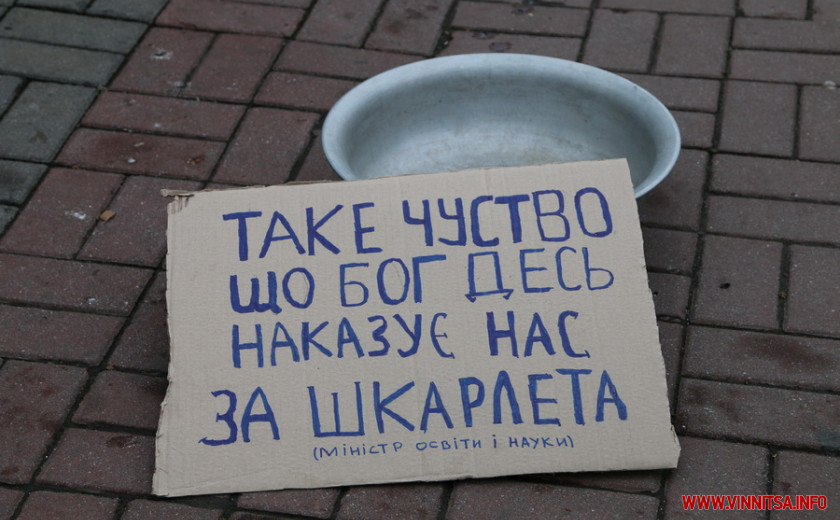 ТАКЕ ЧУСТВО
ЩО БОГ ДЕСЬ
НАКАЗУЄ НАС
ЗА ШКАРЛЕТА
(МІНІСТР ОСВІТИ І НАУКИ)
WWW.VINNITSA.INFO